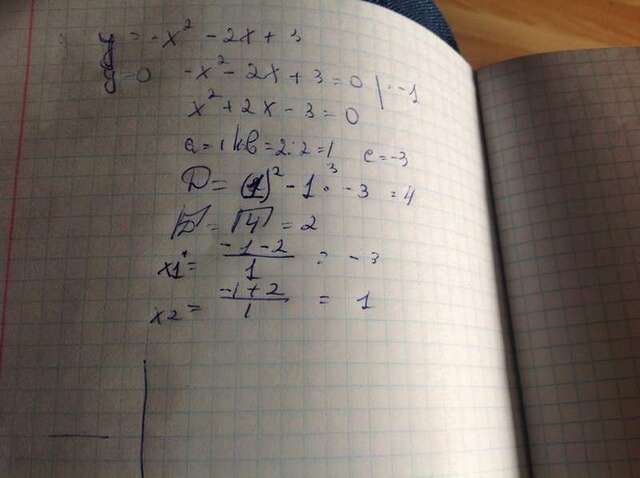 y = -x² - 2x + 3
y=0 -x² - 2x + 3 = 0 | : -1
x² + 2x - 3 = 0
a = 1 k = 2 : 2 = 1 c = -3
D = (1)² - 1 · -3 = 4
√D = √4 = 2
x1 = (-1-2)/1 = -3
x2 = (-1+2)/1 = 1